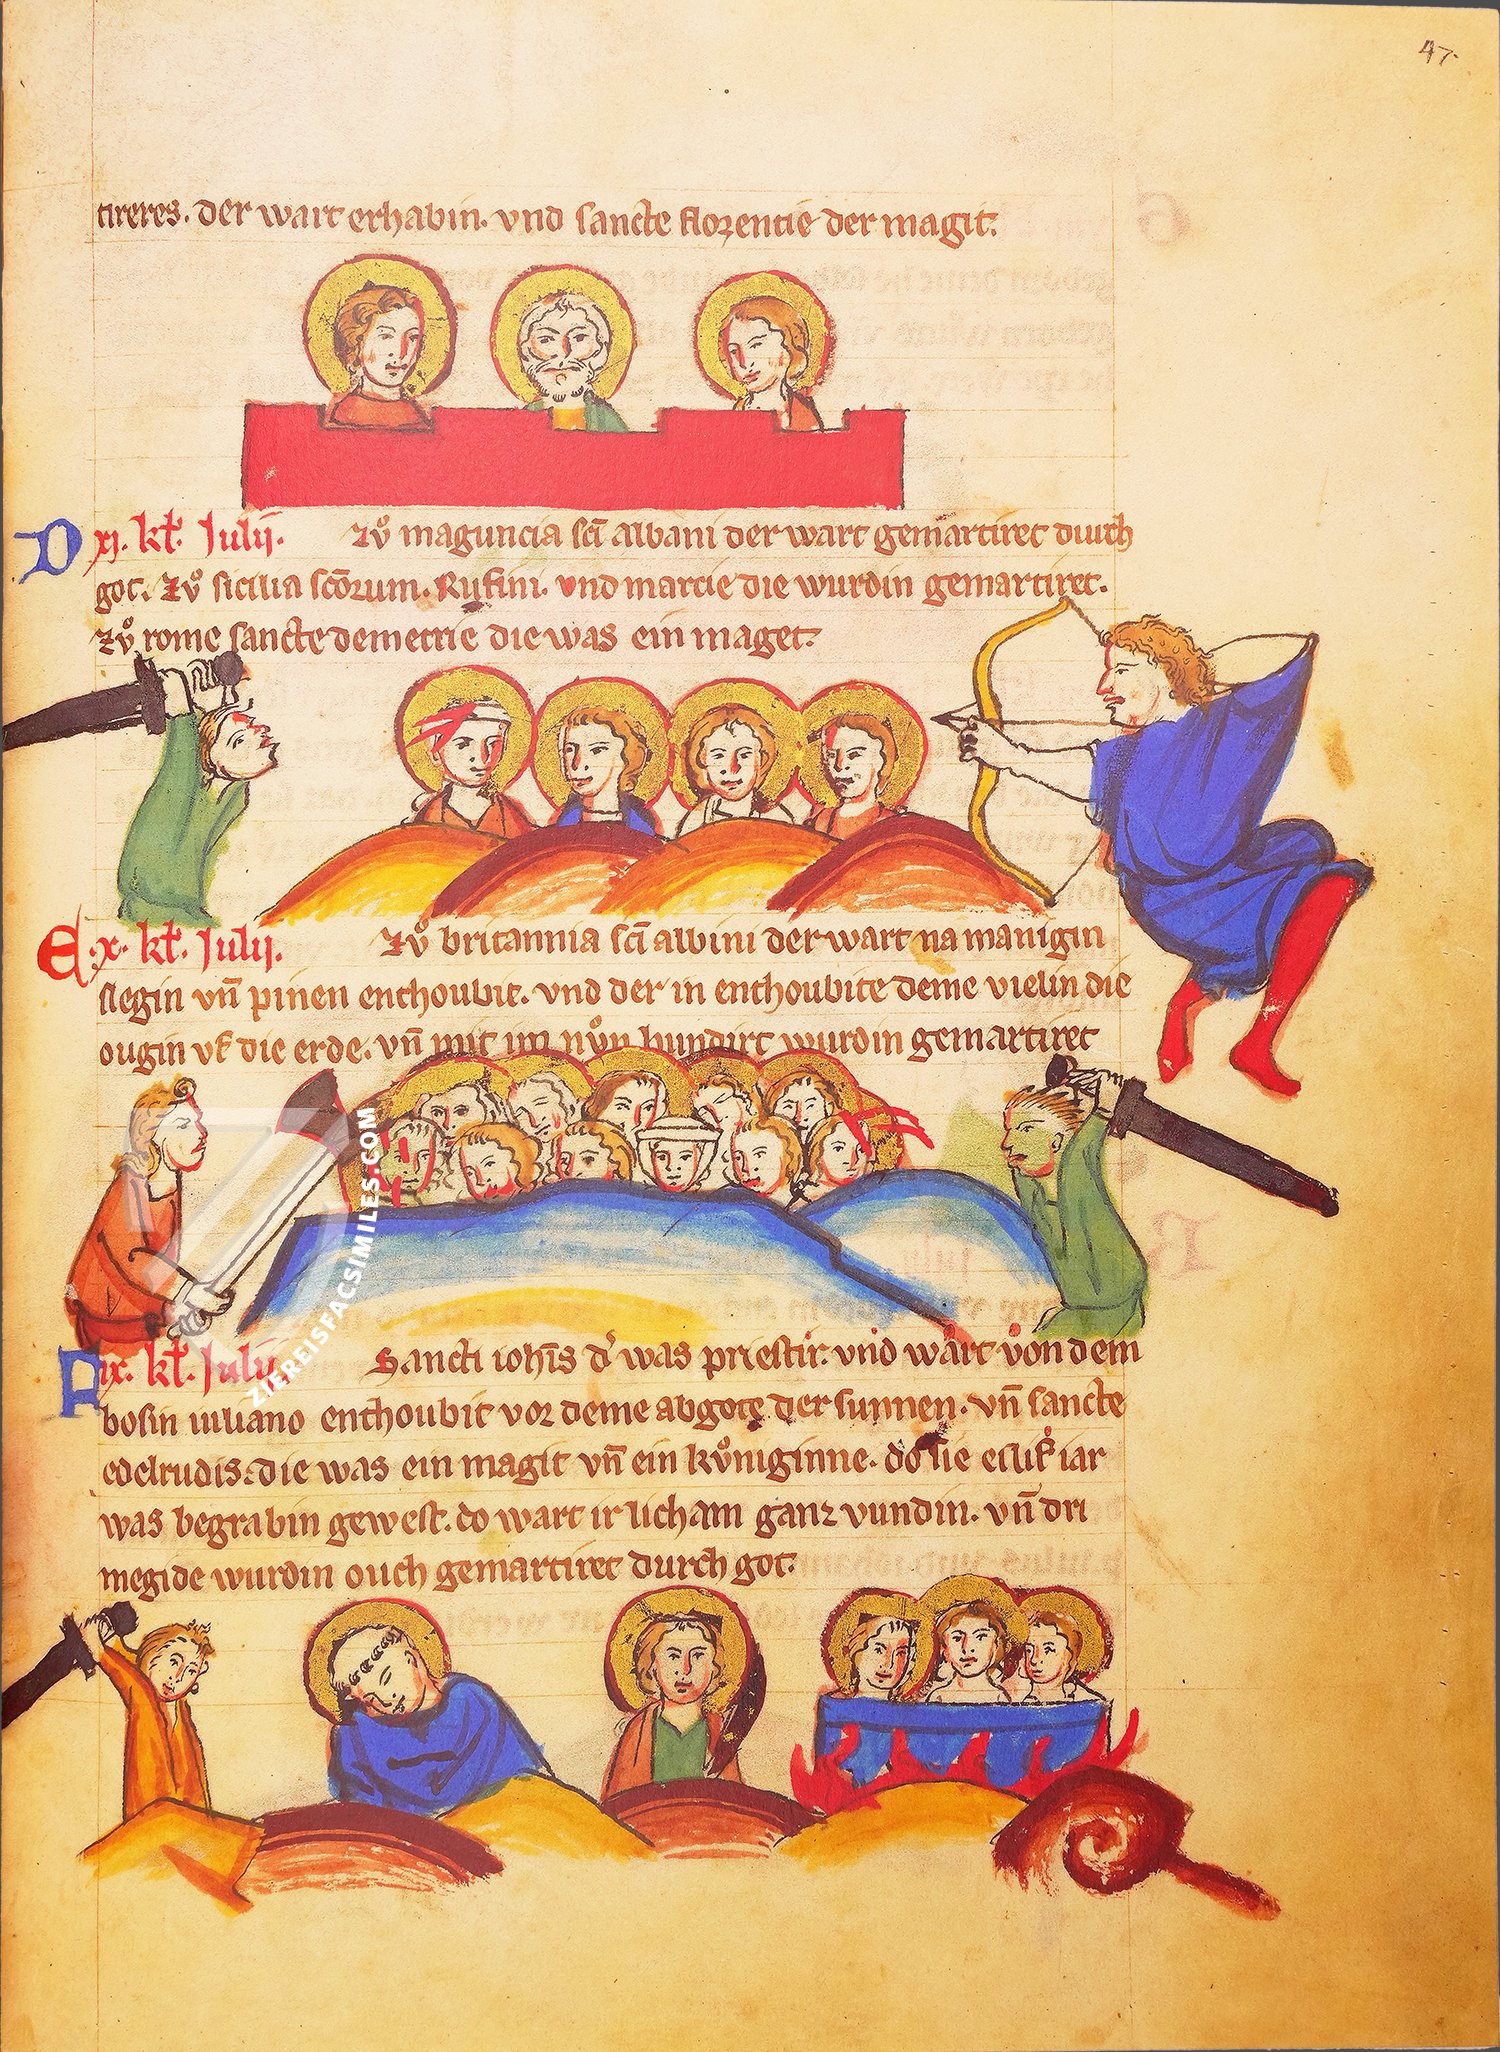 47.
tireres. der wart erhabin. vnd sancte florentie der magit.
D xj. kł. Julij. Zů maguncia scī albani der wart gemartiret durch
got. Zů sicilia scōrum. Rufini. vnd marcie die wurdin gemartiret.
Zů rome sancte demetrie die was ein maget.
E .x. kł. Julij. Zů britannia scī albini der wart na manigin
slegin vn̄ pinen enthoubit. vnd der in enthoubite deme vielin die
ougin vf die erde. vn̄ mit im nůn hundirt wurdin gemartiret
ix. kł. Julij Sancti ioh̄is d' was priestir. vnd wart von dem
bosin iuliano enthoubit vor deme abgote der sunnen. vn̄ sancte
edelrudis. die was ein magit vn̄ ein kůniginne. do sie eilif iar
was begrabin gewest. do wart ir licham ganz vundin. vn̄ dri
megide wurdin ouch gemartiret durch got.
ZIEREISFACSIMILES.COM